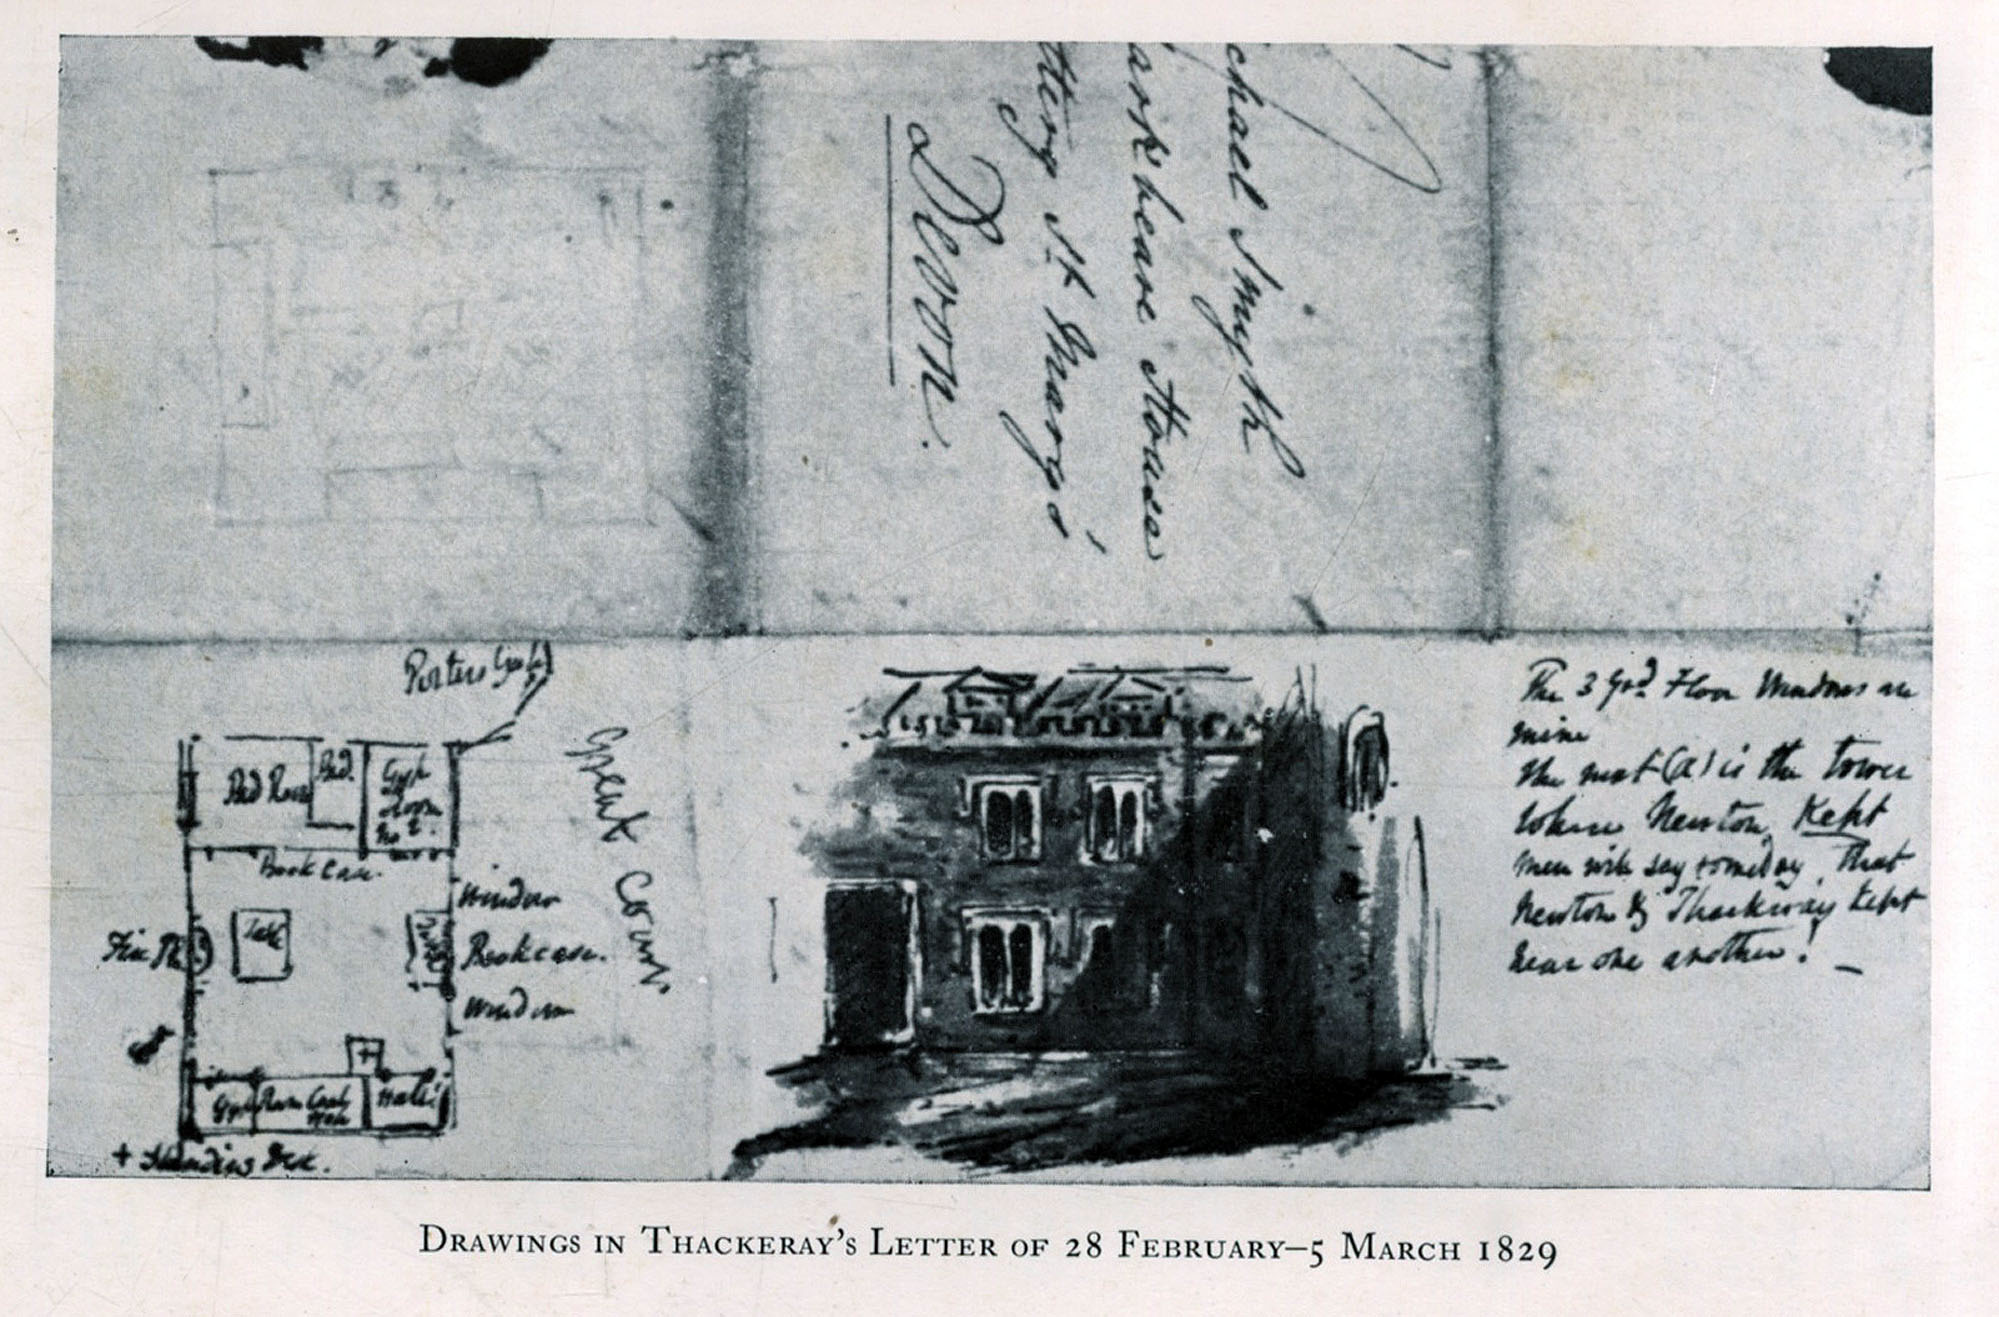 chael Smyth
ark beare House
ttery St. Mary's
Devon.
Porters
Great Court
Bed Room
Bed.
Gyp
Room
No 2.
Book Case.
Window
Fire Pl
Table
Bookcase.
Window
+
Gyp Room Coal
Hole
Hall
+ Standing Desk.
The 3 Grd. Floor Windows are
mine
the next (a) is the tower
where Newton Kept
men will say someday, that
Newton & Thackeray kept
near one another! _
DRAWINGS IN THACKERAY'S LETTER OF 28 FEBRUARY–5 MARCH 1829